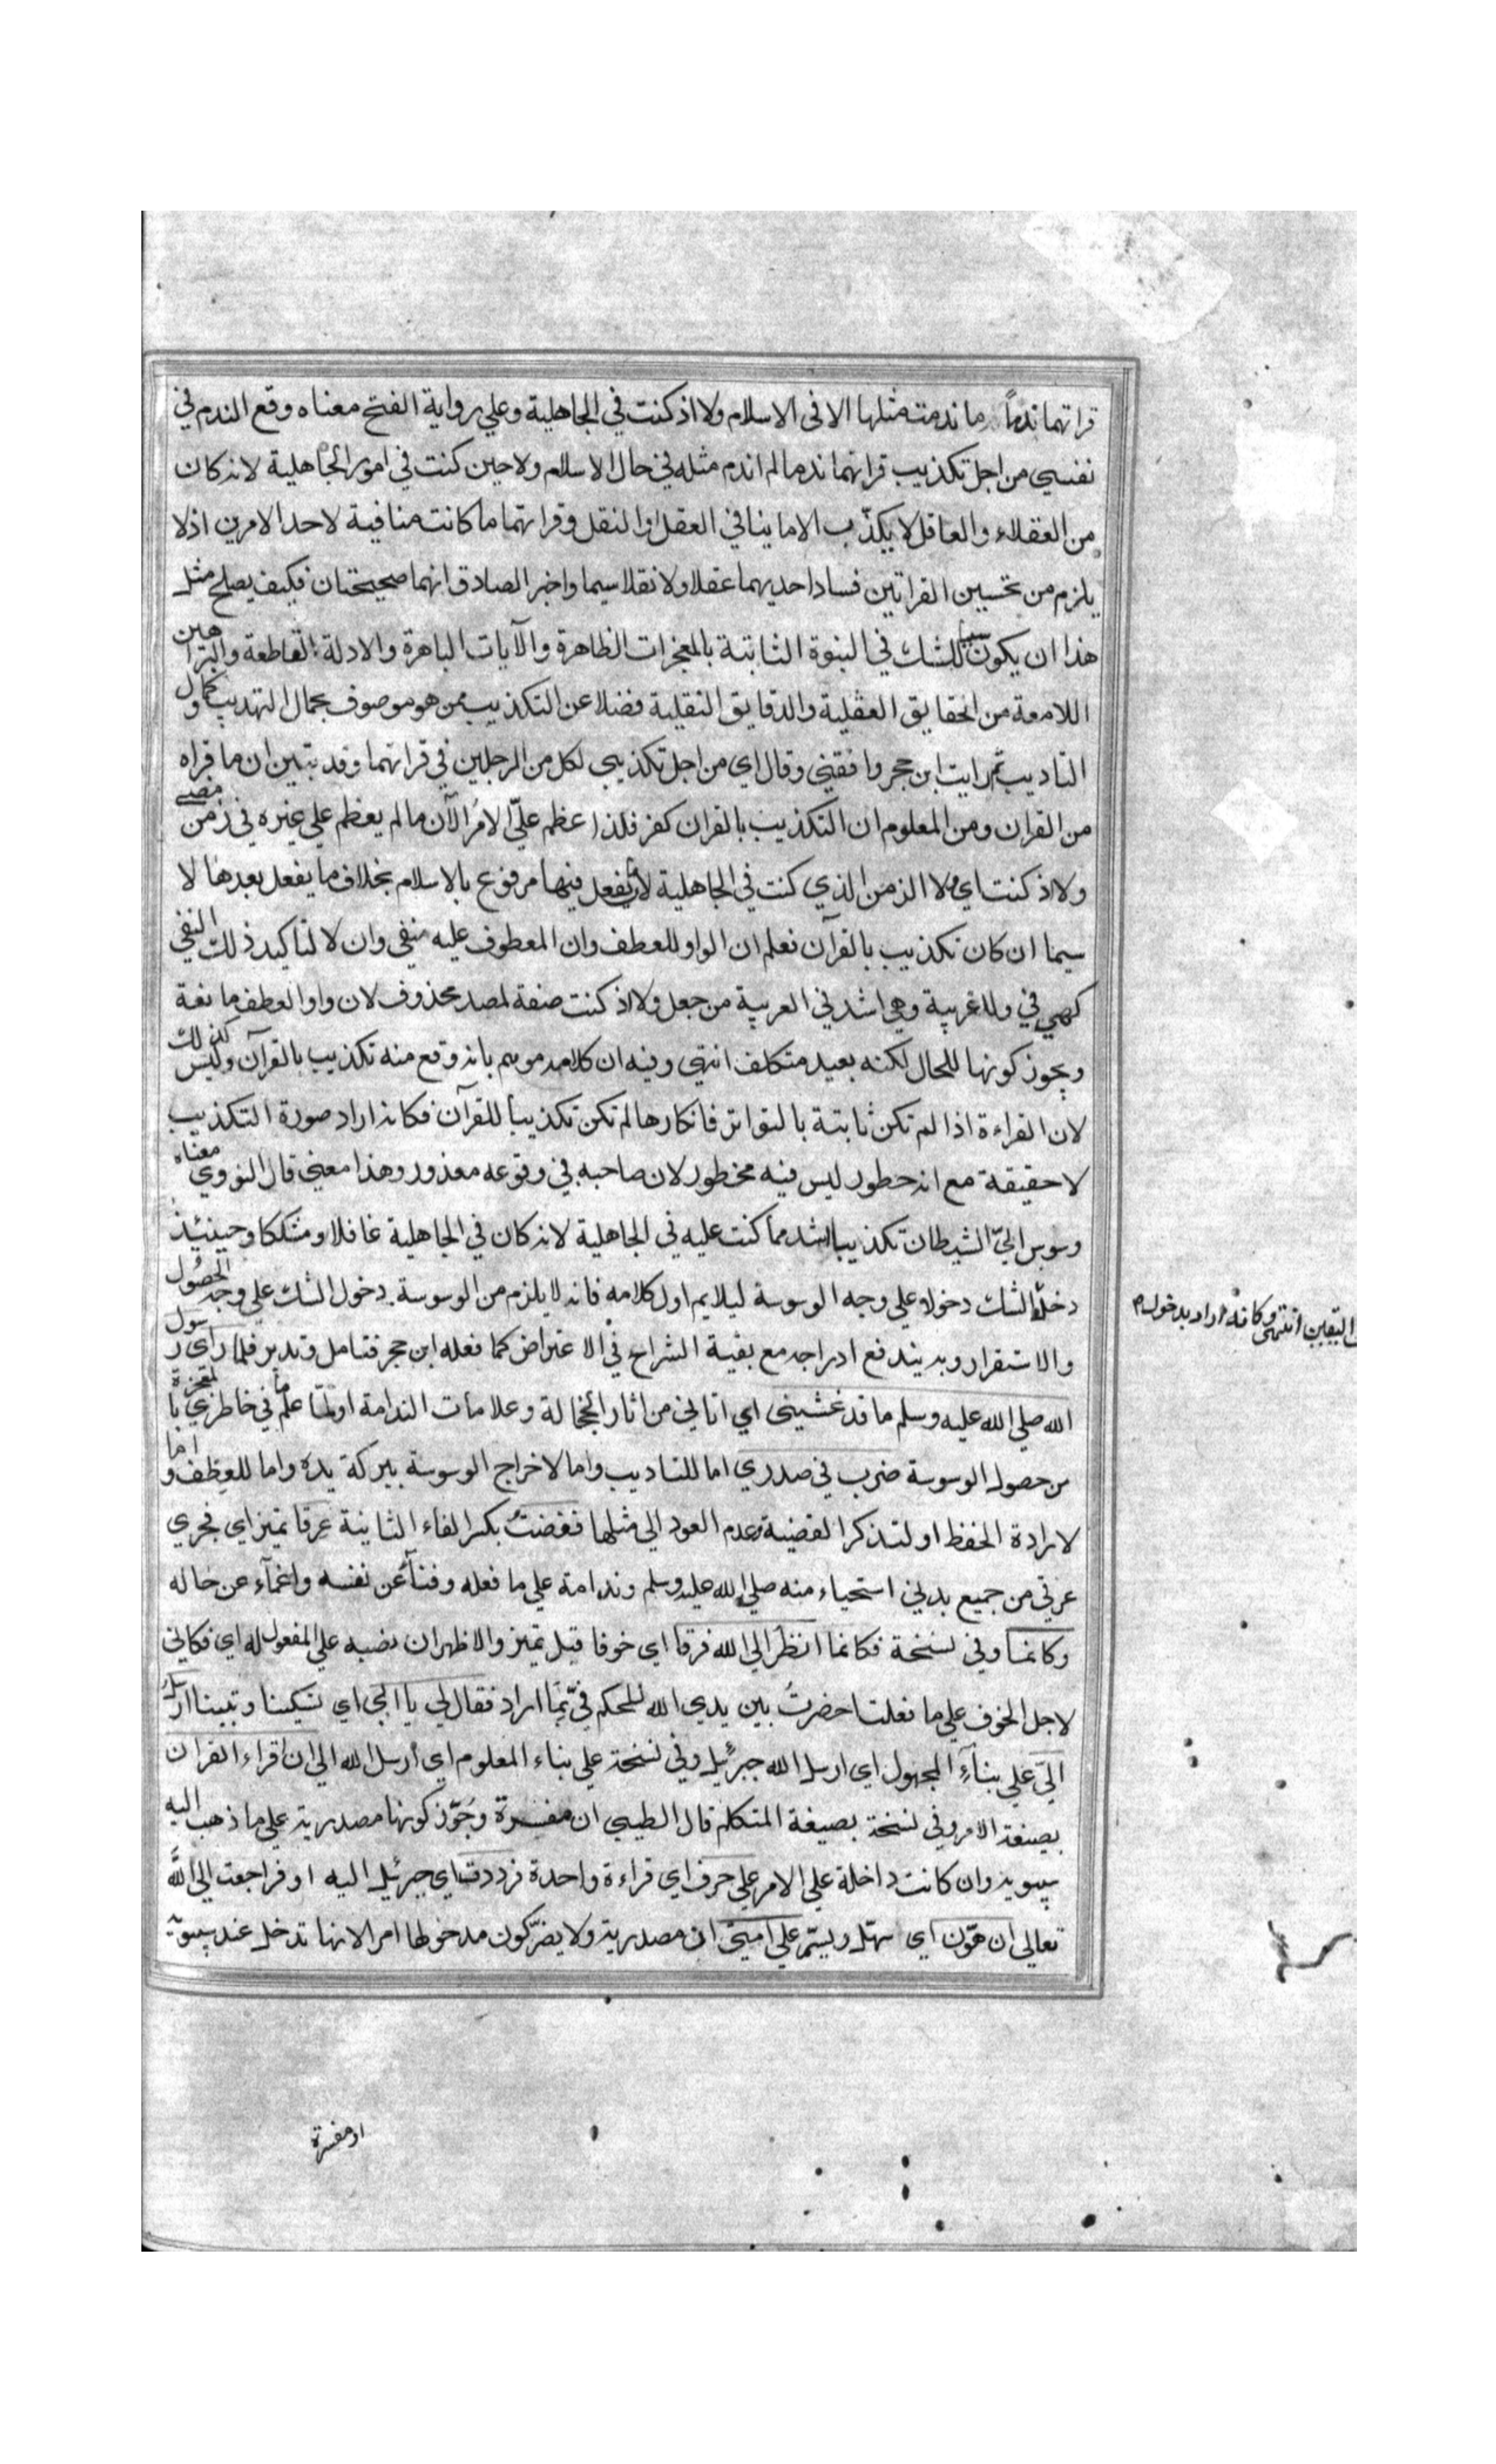 قراتهما ندماً ما ندمت مثلها الا في الاسلام ولا اذ كنت في الجاهلية وعلي رواية الفتح معناه وقع الندم في
نفسي من اجل تكذيب قراتهما ندما لم اندم مثله في حال الاسلام ولا حين كنت في امور الجاهلية لانه كان
من العقلاء والعاقل لا يكذّب الا ما ينافي العقل او النقل وقراتهما ما كانت منافية لاحد الامرين اذ لا
يلزم من تحسين القراتين فساد احديهما عقلا ولا نقلا سيما واخبر الصادق انهما صحيحتان فكيف يصلح مثل
هذا ان يكون سببا للشك في النبوة الثابتة بالمعجزات الظاهرة والآيات الباهرة والادلة القاطعة والبراهين
اللامعة من الحقايق العقلية والدقايق النقلية فضلا عن التكذيب ممن هو موصوف بجمال التهذيب وكمال
التاديب ثم رايت ابن حجر وافقني وقال اي من اجل تكذيبي لكل من الرجلين في قراتهما وقد تبين ان ما قراه
من القران ومن المعلوم ان التكذيب بالقران كفر فلذا عظم عليّ الامرُ الآن ما لم يعظم علي غيره في زمن مضي
ولا اذ كنت اي ولا الزمن الذي كنت في الجاهلية لان ما يفعل فيها مرفوع بالاسلام بخلاف ما يفعل بعدها لا
سيما ان كان تكذيب بالقرآن فعلم ان الواو للعطف وان المعطوف عليه منفي وان لا لتأكيد ذلك النفي
كهي في ولا غربية وهي اشد في العربية من جعل ولا اذ كنت صفة لمصدر محذوف لان واو العطف مانعة
ويجوز كونها للحال لكنه بعيد متكلف انتهي وفيه ان كلامه موهم بانه وقع منه تكذيب بالقرآن وليس كذلك
لان القراءة اذا لم تكن ثابتة بالتواتر فانكارها لم تكن تكذيباً للقرآن فكانه اراد صورة التكذيب
لا حقيقة مع انه خطور ليس فيه محظور لان صاحبه في وقوعه معذور وهذا معني قال النووي معناه
وسوس اليّ الشيطان تكذيبا اشد مما كنت عليه في الجاهلية لانه كان في الجاهلية غافلا ومشككا وحينئذ
دخل الشك دخولا علي وجه الوسوسة ليلايم اول كلامه فانه لا يلزم من الوسوسة دخول الشك علي وجه الحصول
اليقين انتهي وكانه اراد بدخول م
والاستقرار وبه يندفع ادراجه مع بقية الشراح في الاعتراض كما فعله ابن حجر فتامل وتدبر فلما راي رسول
الله صلي الله عليه وسلم ما قد غشيني اي اتاني من اثار الخجالة وعلامات الندامة او لمّا علم ما في خاطري بالمعجزة
من حصول الوسوسة ضرب في صدري اما للتاديب واما لاخراج الوسوسة ببركة يده واما للعطف واما
لارادة الحفظ او لتذكر القضية وعدم العود الي مثلها ففضتُ بكسر الفاء الثانية عرقا تميز اي فجري
عرقي من جميع بدني استحياء منه صلي الله عليه وسلم وندامة علي ما فعله وفنآء عن نفسه واغمآء عن حاله
وكانما وفي نسخة فكانما انظر الي الله فرقا اي خوفا قيل تميز والاظهر ان نصبه علي المفعول له اي فكاني
لاجل الخوف علي ما فعلت احضرتُ بين يدي الله للحكم فيّ بما اراد فقال لي يا ابي اي تسكينا وتبيينا ارسل
اليّ علي بناءِ المجهول اي ارسل الله جبرئيل وفي نسخة علي بناء المعلوم اي أرسل الله الي ان اقراء القران
بصيغة الامر وفي نسخة بصيغة المتكلم قال الطيبي ان مفسرة وجُوّز كونها مصدرية علي ما ذهب اليه
سيبويه وان كانت داخلة علي الامر علي حرف اي قراءة واحدة فرددت اي جبرئيل اليه او فراجعت الي الله
تعالي ان هوّن اي سهّل ويسّر علي امتي ان مصدرية ولا يضرّ كون مدخولها امرا لانها تدخل عند سيبويه
او مفسرة